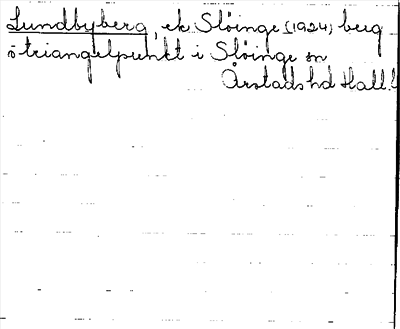 Lundbyberg, ek Slöinge (1924) berg
o triangelpunkt i Slöinge sn
Årstads hd Hall.